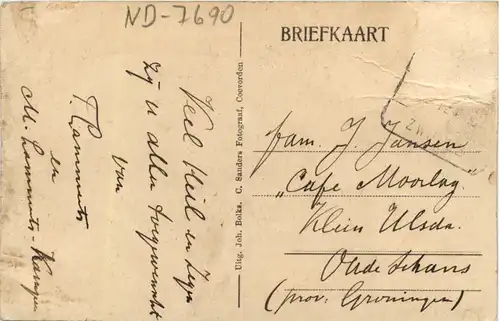 ND-7690
BRIEFKAART
Veel Heil en Zegen
zij u allen toegewenscht
van
F. Lammerts
en
M. Lammerts-Kamper
Uitg. Joh. Bolks. C. Sanders Fotograaf, Coevorden
fam. J. Jansen
„Cafe Moorlag"
Klein Ulsda.
Oude Schans
(prov. Groningen)